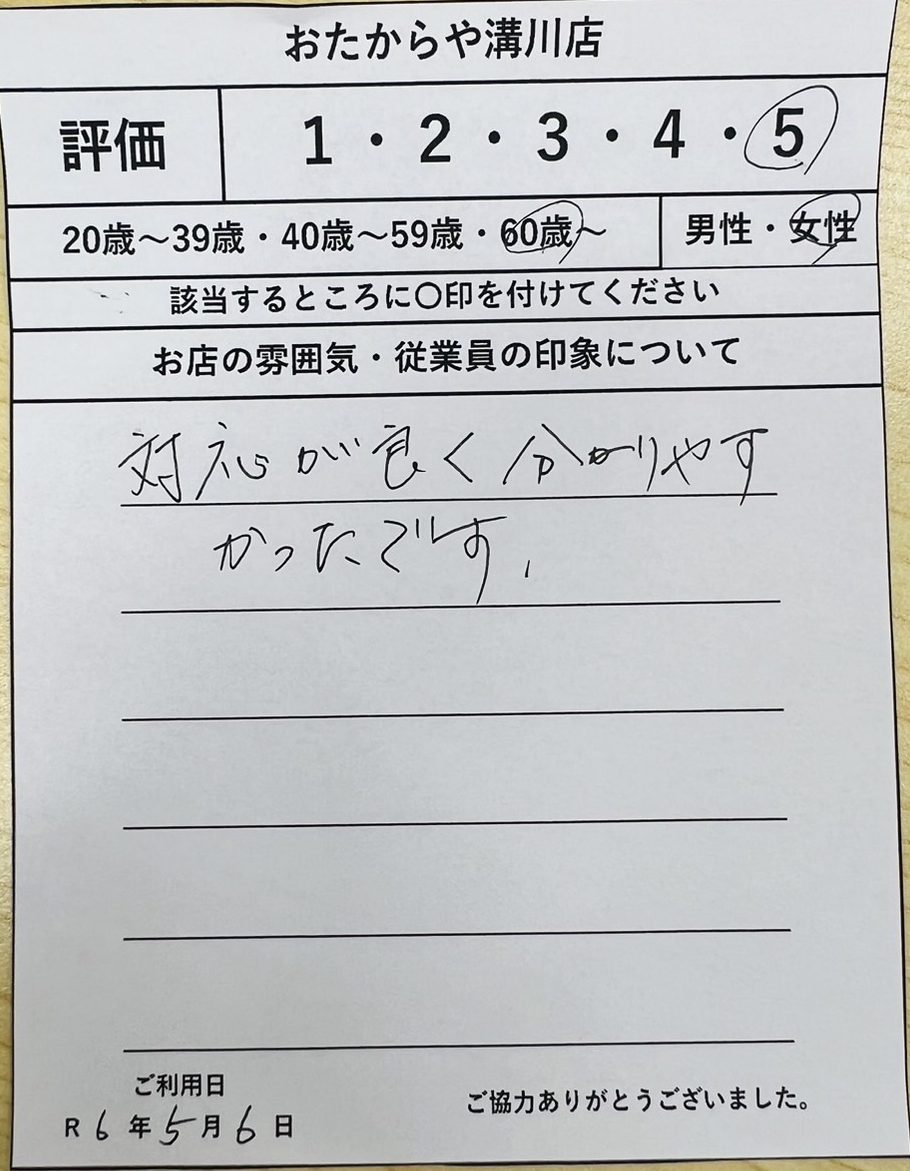 おたからや溝川店
評価 1・2・3・4・5
20歳～39歳・40歳～59歳・60歳～ 男性・女性
該当するところに〇印を付けてください
お店の雰囲気・従業員の印象について
対応が良く分かりやす
かったです,
ご利用日
R6年5月6日
ご協力ありがとうございました。